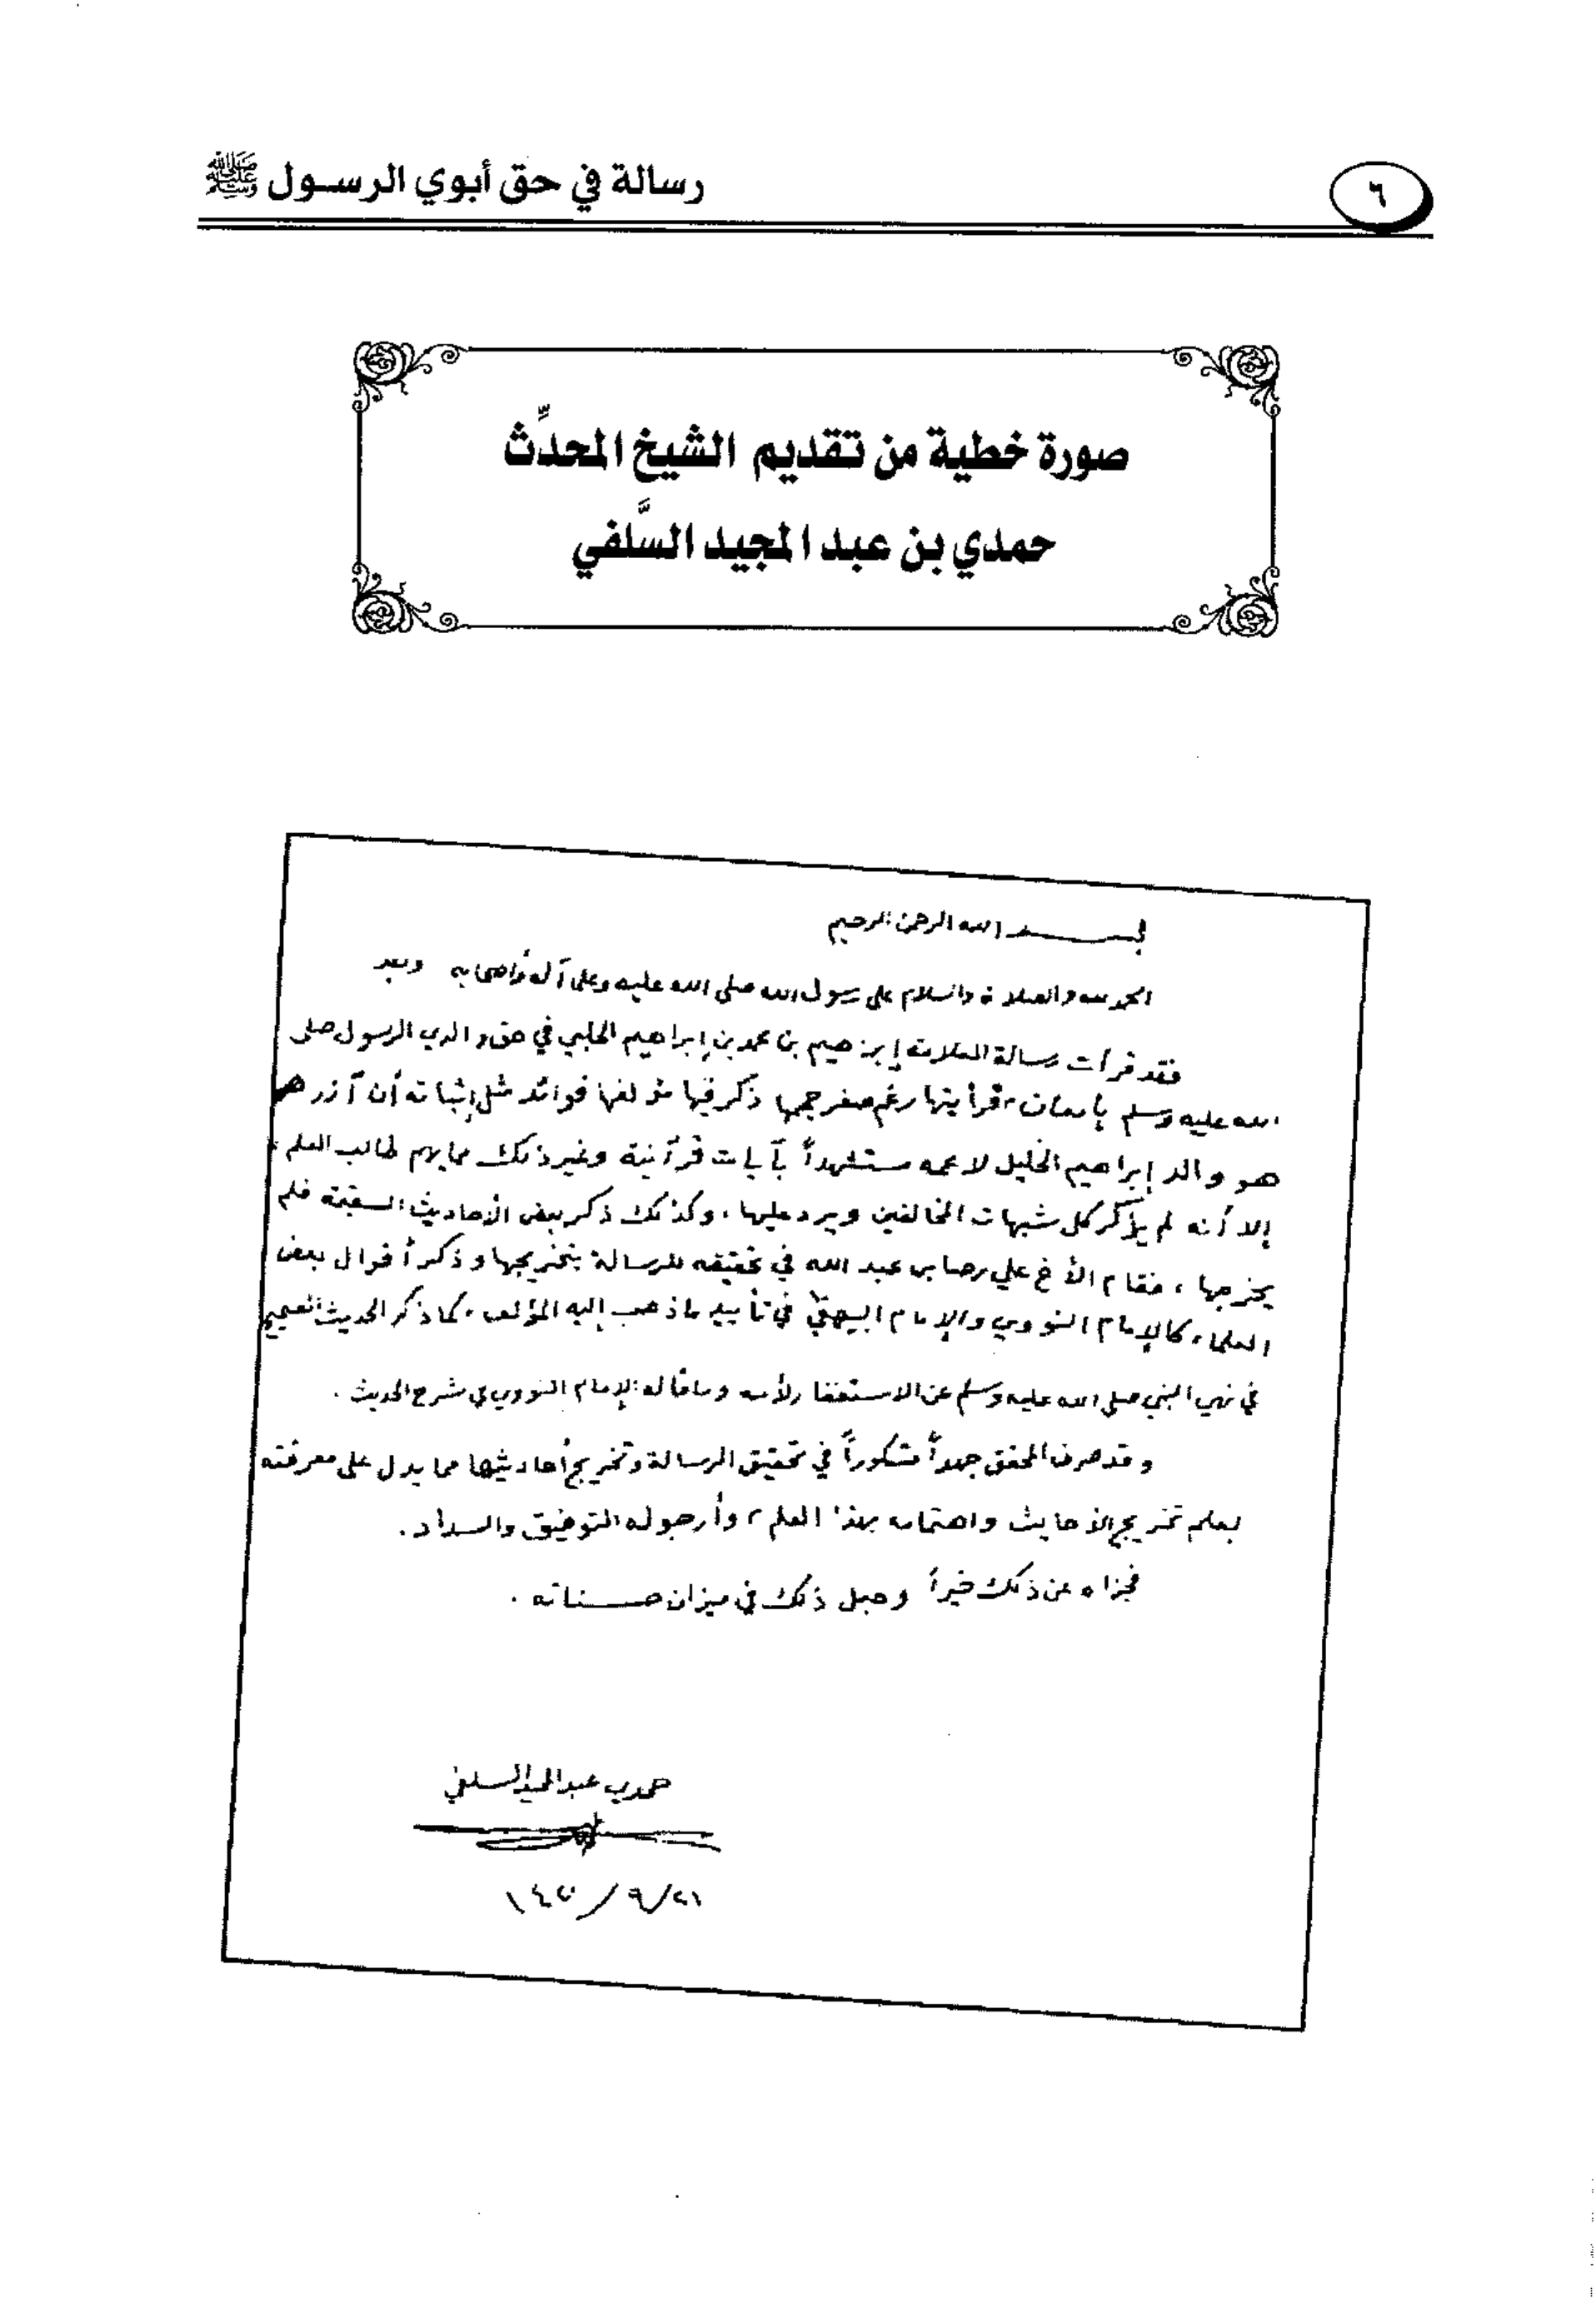 رسالة في حق أبوي الرسول ﷺ
٦
صورة خطية من تقديم الشيخ المحدِّث
حمدي بن عبد المجيد السَّلفي
بسم الله الرحمن الرحيم
الحمد لله والصلاة والسلام على رسول الله صلى الله عليه وعلى آله وأصحابه وبعد
فقد قرأت رسالة العلامة إبراهيم بن محمد بن إبراهيم الحلبي في حق والدي الرسول صلى
الله عليه وسلم بإمعان، فرأيتها رغم صغر حجمها ذكر فيها مؤلفها فوائد مثل إثباته أن آزر هو
هو والد إبراهيم الخليل لا عمه مستشهداً بآيات قرآنية وغير ذلك مما يهم طالب العلم،
إلا أنه لم يذكر كل شبهات المخالفين ويرد عليها، وكذلك ذكر بعض الأحاديث السقيمة فلم
يخرجها، فقام الأخ علي رضا بن عبد الله في تحقيقه للرسالة بتخريجها وذكر أقوال بعض
العلماء كالإمام النووي والإمام البيهقي في تأييد ما ذهب إليه المؤلف، كما ذكر الحديث الصحيح
في نهي النبي صلى الله عليه وسلم عن الاستغفار لأمه وما قاله الإمام النووي في شرح الحديث.
وقد صرف المحقق جهداً مشكوراً في تحقيق الرسالة وتخريج أحاديثها مما يدل على معرفته
بعلم تخريج الأحايث واهتمامه بهذا العلم، وأرجو له التوفيق والسداد.
فجزاه عن ذلك خيراً وجعل ذلك في ميزان حسناته.
حمدي عبد المجيد السلفي
٢١/٩/١٤٢٠